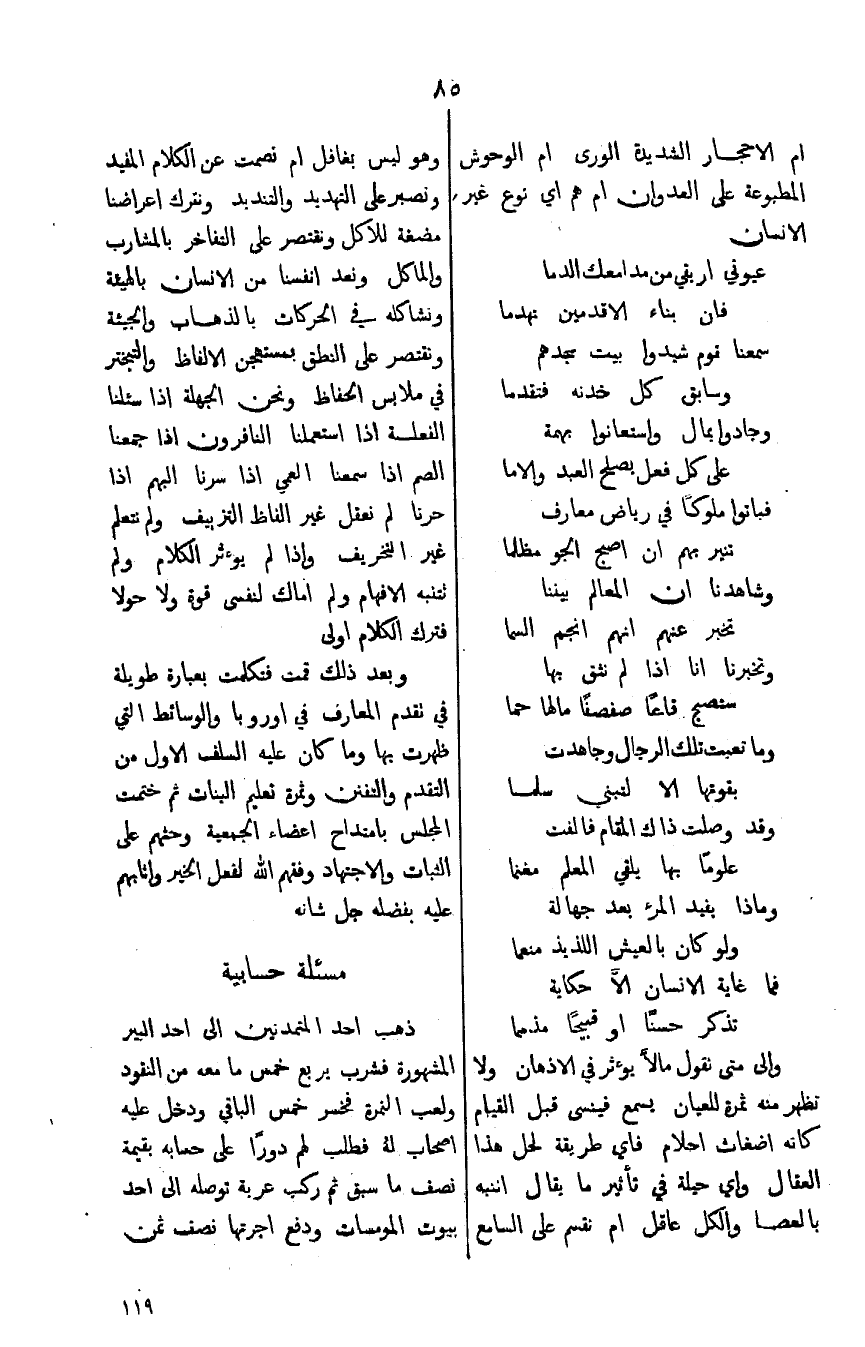 ٨٥
ام الاحجار الشديدة الورى ام الوحوش
المطبوعة على العدوان ام هم اي نوع غير
الانسان
عيوني اريقي من مدامعك الدما
فان بناء الاقدمين تهدما
سمعنا قوم شيدوا بيت مجدهم
وسابق كل خدنه فتقدما
وجادوا بمال واستعانوا بهمة
على كل فعل يصلح العبد والاما
فباتوا ملوكًا في رياض معارف
تنير بهم ان اصبح الجو مظلما
وشاهدنا ان المعالم بيننا
تخبر عنهم انهم انجم السما
وتخبرنا انا اذا لم نثق بها
ستصبح قاعًا صفصفًا مالها حما
وما تعبت تلك الرجال وجاهدت
بقوتها الا لتبني سلما
وقد وصلت ذاك المقام فالفت
علومًا بها يلقي المعلم مغنما
وماذا يفيد المرء بعد جهالة
ولو كان بالعيش اللذيذ منعما
فما غاية الانسان الاَّ حكاية
تذكر حسنًا او قبيحًا مذمما
والى متى نقول مالاً يوءثر في الاذهان ولا
تظهر منه ثمرة للعيان يسمع فينسى قبل القيام
كانه اضغاث احلام فاي طريقة لحل هذا
العقال واي حيلة في تأثير ما يقال اننبه
بالعصا والكل عاقل ام نقسم على السامع
وهو ليس بغافل ام نصمت عن الكلام المفيد
ونصبر على التهديد والتنديد ونترك اعراضنا
مضغة للآكل ونقتصر على التفاخر بالمشارب
والماكل ونعد انفسنا من الانسان بالهيئة
ونشاكله في الحركات بالذهاب والجيئة
ونقتصر على النطق بمستهجن الالفاظ والتبختر
في ملابس الحفاظ ونحن الجهلة اذا سئلنا
الفعلة اذا استعملنا النافرون اذا جمعنا
الصم اذا سمعنا العمي اذا سرنا البهم اذا
حرنا لم نعقل غير الفاظ التزييف ولم نتعلم
غير التخريف واذا لم يوءثر الكلام ولم
تتنبه الافهام ولم املك لنفسى قوة ولا حولا
فترك الكلام اولى
وبعد ذلك قمت فتكلمت بعبارة طويلة
في تقدم المعارف في اوروبا والوسائط التي
ظهرت بها وما كان عليه السلف الاول من
التقدم والتفنن وثمرة تعليم البنات ثم ختمت
المجلس بامتداح اعضاء الجمعية وحثهم على
الثبات والاجتهاد وفقهم الله لفعل الخير واثابهم
عليه بفضله جل شانه
مسئلة حسابية
ذهب احد المتمدنين الى احد البير
المشهورة فشرب بربع خمس ما معه من النقود
ولعب النمرة فخسر خمس الباقي ودخل عليه
اصحاب لهُ فطلب لهم دورًا على حسابه بقيمة
نصف ما سبق ثم ركب عربة توصله الى احد
بيوت المومسات ودفع اجرتها نصف ثمن
١١٩